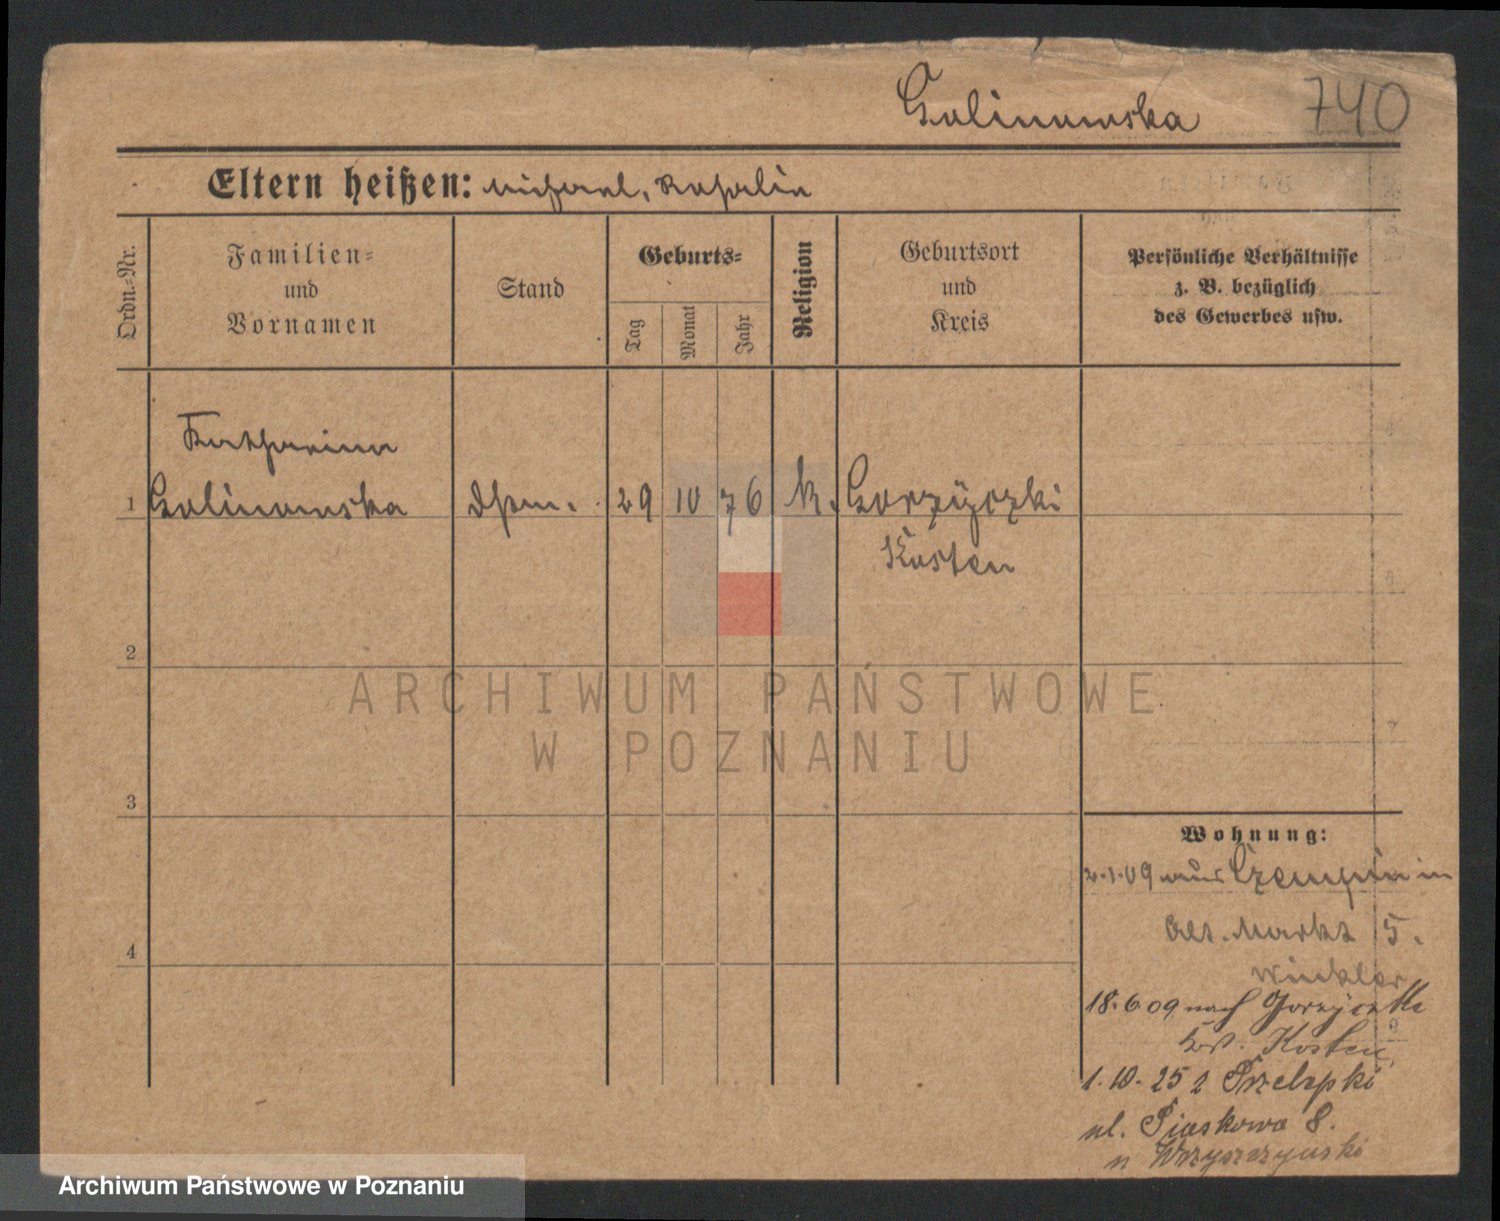 Galinowska 740
Eltern heißen: Michael, Rosalie
Ordn.-Nr.
Familien-
und
Vornamen
Stand
Geburts-
Tag
Monat
Jahr
Religion
Geburtsort
und
Kreis
Persönliche Verhältnisse
z. B. bezüglich
des Gewerbes usw.
Katharina
1 Galinowska 29 10 76 K. Gorzyczki
Kosten
2
ARCHIWUM PAŃSTWOWE
W POZNANIU
3
Wohnung:
2.1.09 aus Czempin in
Alt. Markt 5.
Winkler
4
18.6.09 nach Gorzyczki
Kosten
1.10.25 z
ul. Piaskowa 8.
Archiwum Państwowe w Poznaniu